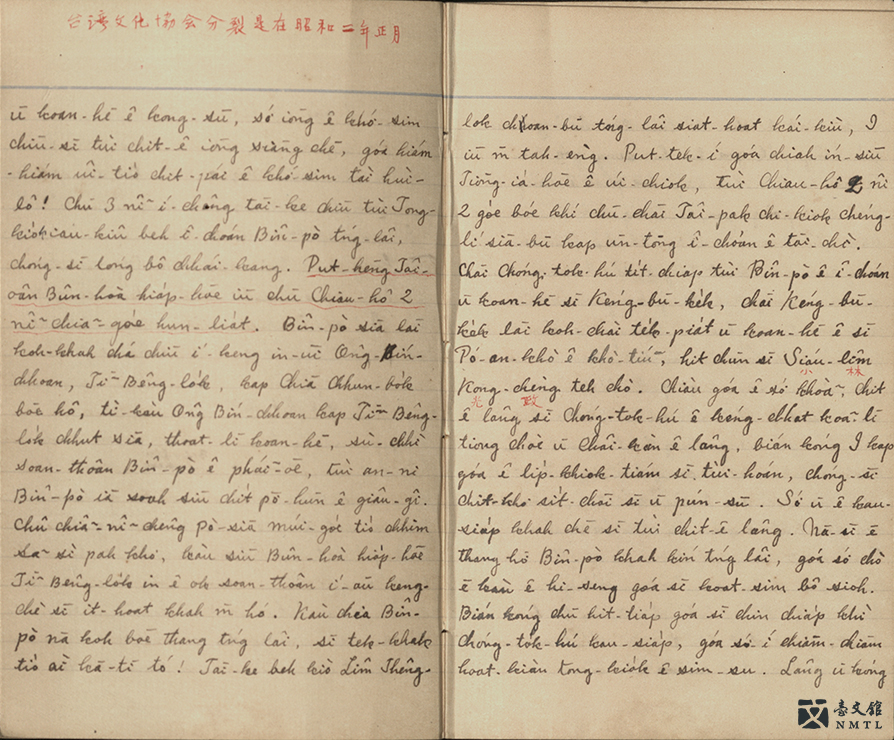 台湾文化協会分裂是在昭和二年正月
ū koan-hē ê kong-sū, só iōng ê khó-sim
chiū-sī tùi chit-ê iōng siāng chē, góa hiám
-hiám ūi-tio̍h chit-pái ê khó-sim tài hùi-
lô! Chū 3 nî í-chêng tāi-ke chiū tùi Tong-
kio̍k iau-kiû beh ī-choán Bîn-pò tńg-lâi,
chóng-sī lóng bô chhái-kang. Put-hēng Tâi-
oân Bûn-hoà hia̍p-hōe iū chū Chiau-hô 2
nî chiaⁿ-goe̍h hun-lia̍t. Bîn-pò siā lāi
koh-khah chá chiū í-keng in-ūi Ông-Bín-
chhoan, Tīⁿ Bêng-lo̍k, kap Chiā Chhun-bo̍k
bōe hô, tì-kàu Ông Bín-chhoan kap Tīⁿ Bêng-
lo̍k chhut siā, thoat-lî koan-hē, sù-chhì
soan-thoân Bîn-pò ê pháiⁿ-ōe, tùi an-ni
Bîn-pò iā siū chi̍t pō-hūn ê giâu-gî.
Chū chiâⁿ-nî-chêng Pò-siā múi-goe̍h tio̍h chhim
saⁿ sì pah kho, kàu siū Bûn-hoà hia̍p-hōe
Tīⁿ Bêng-lo̍k in ê ok soan-thoân í-āu keng-
chè sī it-hoat khah m̄ hó. Nāu chia Bîn-
pò nā koh bōe thang tńg lâi, sī tek-khak
tio̍h ài ka-tī tó! Tāi-ke beh kiò Lîm Thêng-
lo̍k choan-bū tńg-lâi siat-hoat kái-kiù, I
iū m̄ tah-èng. Put-tek-í góa chiah in-siū
Tiong-iá-hōe ê úi-chiok, tùi Chiau-hô 2 nî
2 goe̍h bóe khí chū-chāi Tâi-pak chi-kio̍k chéng-
lí siā-bū kap ūn-tōng ī-choán ê tāi-chì.
Chāi Chóng-tok-hú ti̍t-chiap tùi Bîn-pò ê ī-choán
ū koan-hē sī Kéng-bū-kio̍k, chāi Kéng-bū-
kio̍k lāi koh-chài te̍k-pia̍t ū koan-hē ê sī
Pó-an-khò ê khò-tiúⁿ, hit chūn sī Siáu-lîm
小林
Kong-chèng teh chò. Chiàu góa ê só khoàⁿ, chit
光政
ê lâng sī Chóng-tok-hú ê kéng-chhat koaⁿ-lī
tiong chòe ū châi-kàn ê lâng, bián kóng I kap
góa ê li̍p-khiok-tiám sī tùi-hoán, chóng-sī
chit-khò si̍t-chāi sī ū pún-sū. Só ū ê kau-
siap khah chē sī tùi chit-ê lâng. Nā-sī ē
thang hō Bîn-pò khah kín tńg lâi, góa só chò
ē kàu ê hi-seng góa sī koat-sim bô sioh.
Bián kóng chū hit-tia̍p góa sī chin chia̍p khì
Chóng-tok-hú kau-siap, góa só-í chiām-chiām
hoat-kiàn tong-kio̍k ê sim-su. Lâng ū kóng
臺文館
NMTL